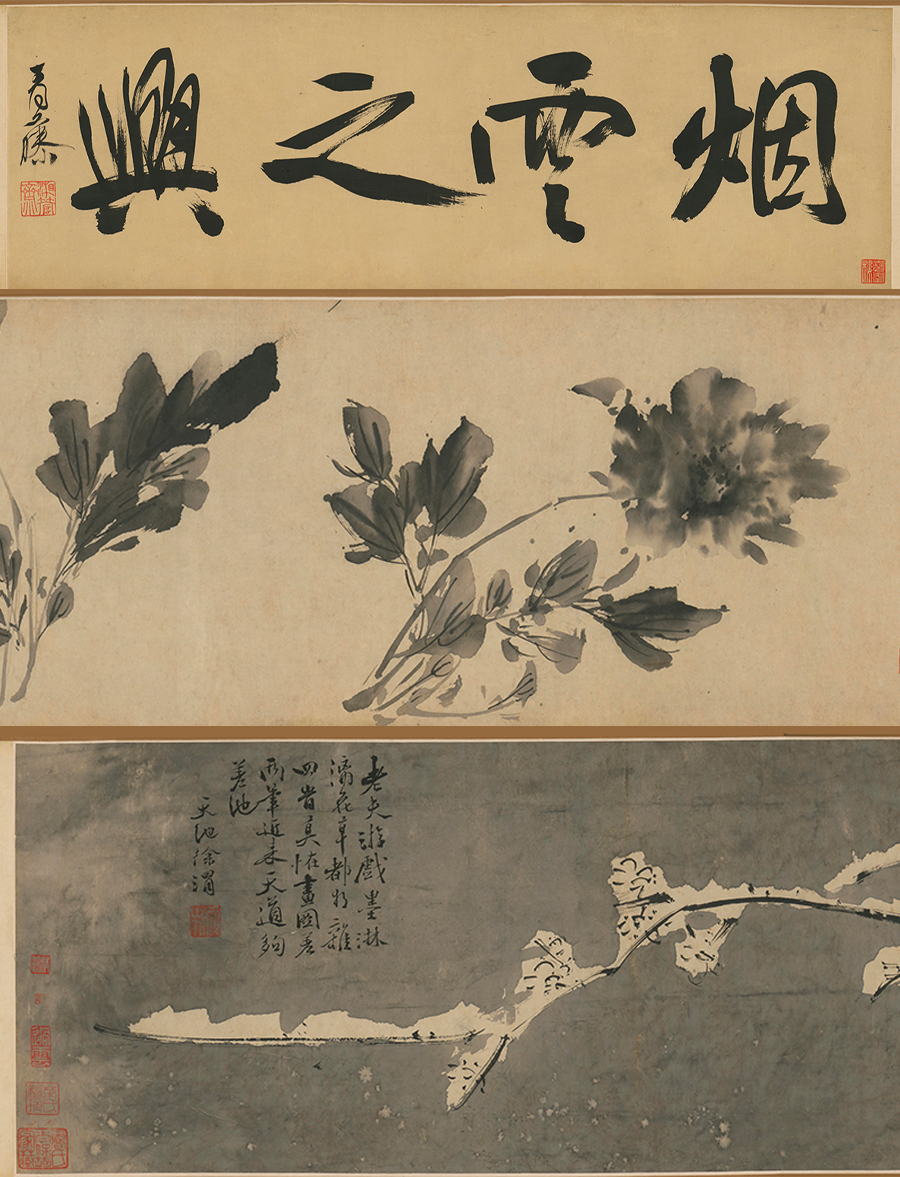 烟雲之興
青藤
老夫游戲墨淋
漓花草都將雜
四旹莫恠畫圖差
兩筆近來天道夠
差池
天池徐渭